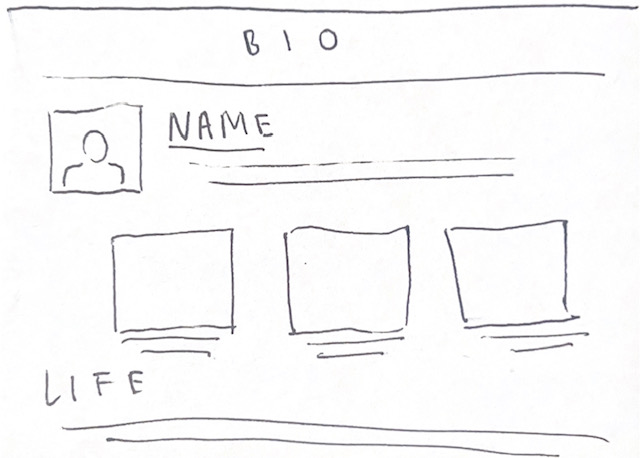 BIO
NAME
LIFE